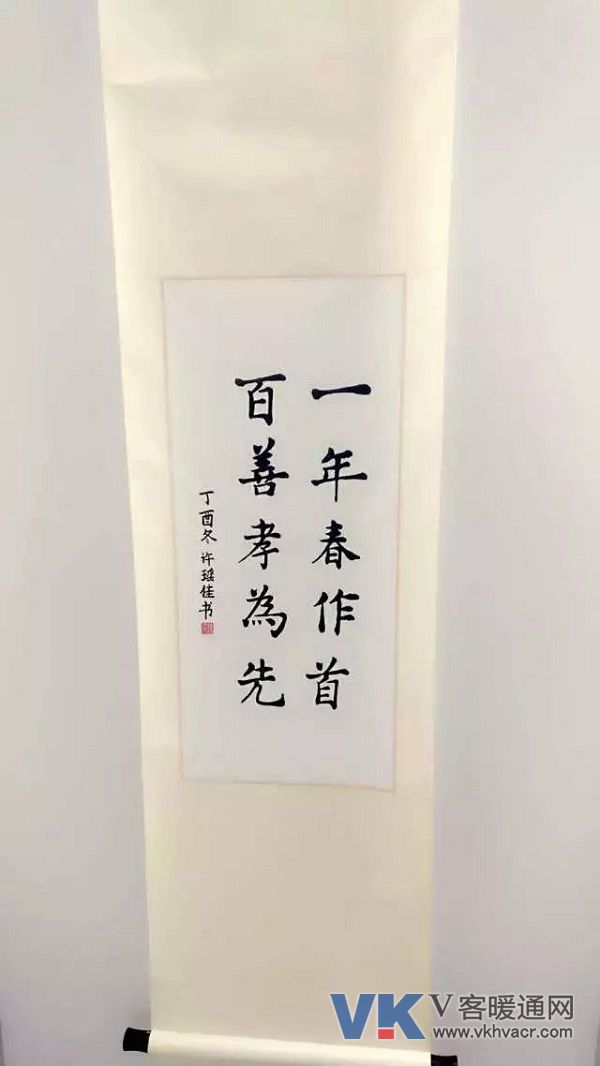 一年春作首
百善孝為先
丁酉冬 许瑶佳书
VK V客暖通网
www.vkhvacr.com